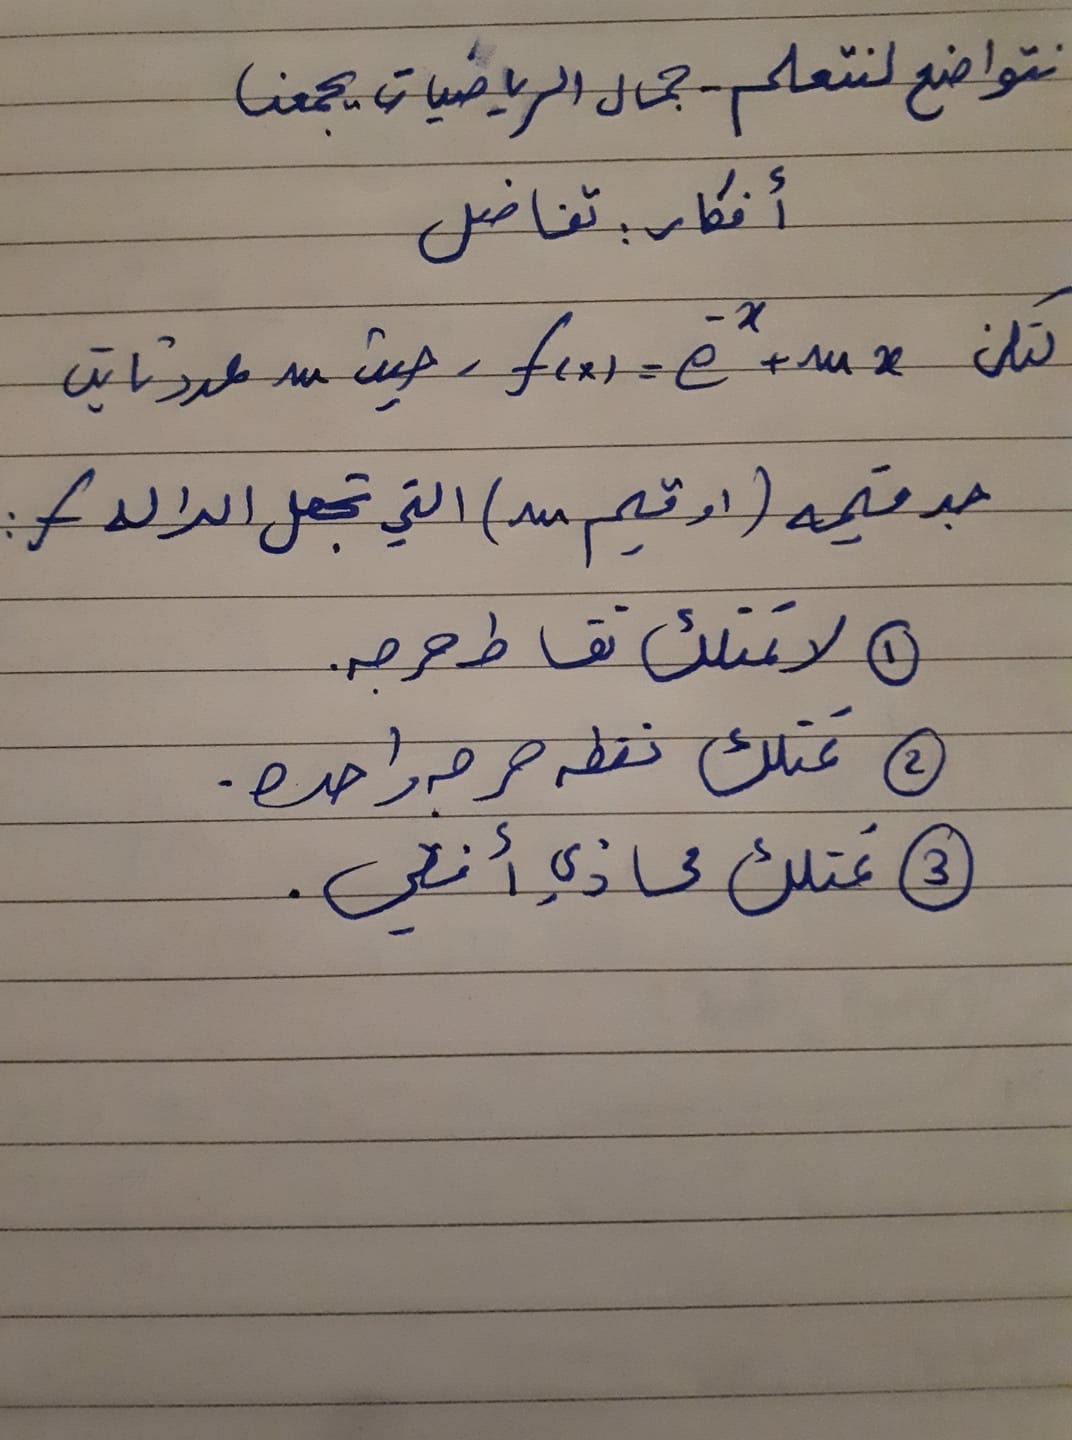 نتواضع لنتعلم - جمال الرياضيات يجمعنا
أفكار: تفاضل
لتكن f(x) = e^{-x} + mx، حيث m عدد ثابت
جد قيمه (او قيم m) التي تجعل الداله f:
① لا تمتلك نقاط حرجه.
② تمتلك نقطه حرجه واحده.
③ تمتلك محاذي أفقي.